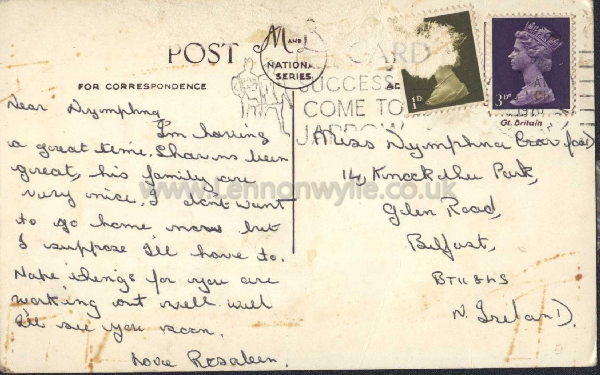 POST CARD
M AND L
NATIONAL
SERIES.
FOR CORRESPONDENCE
AD
SUCCESS
COME TO
1D
3D
1970
Gt. Britain
www.Lennonwylie.co.uk
Dear Nymphna
I'm having
a great time. Sharon's been
great, his family are
very nice. I don't want
to go home now but
I suppose I'll have to.
Hope things for you are
working out well well
I'll see you soon.
Love Rosaleen.
Miss Nymphna Crawford
14, Knock the Park,
Glen Road,
Belfast,
N. Ireland.